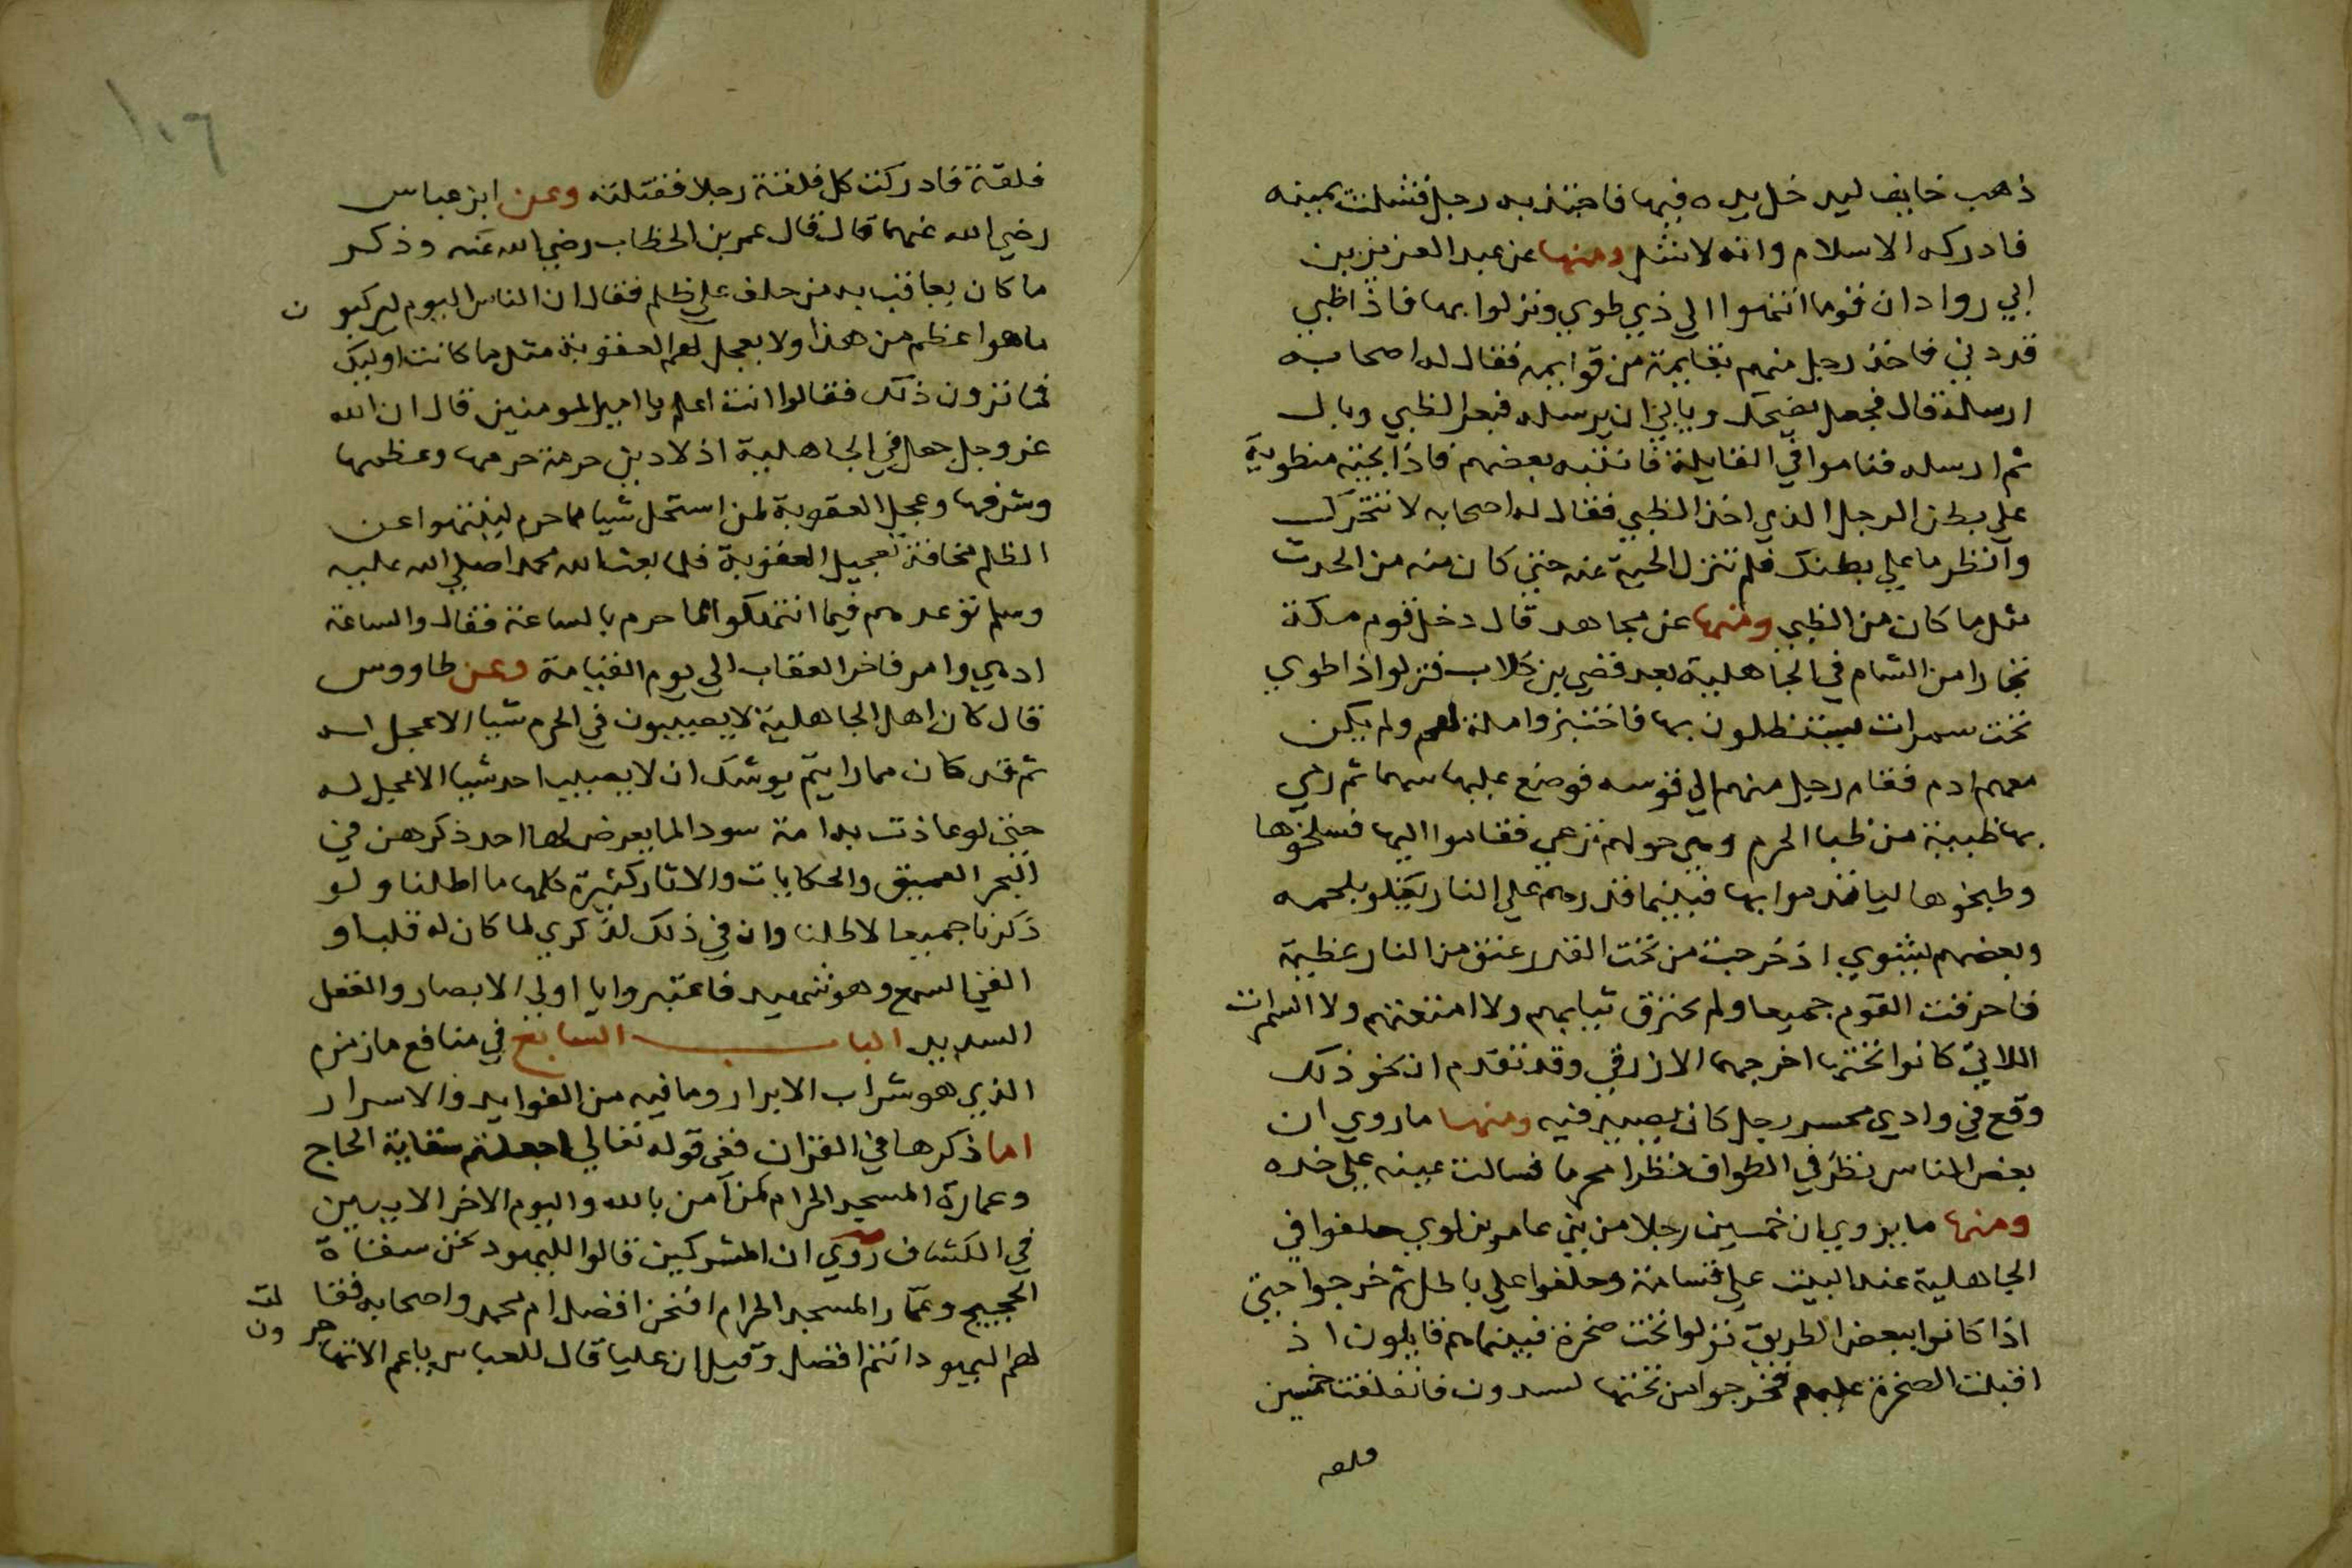 ذهب خايف ليدخل يده فيها فاجتذبه رجل فشلت يمينه
فادركه الاسلام وانه لاشل ومنها عن عبد العزيز بن
ابي رواد ان قوما انتهوا الي ذي طوي ونزلوا بها فاذا ظبي
قد دني فاخذ رجل منهم بقايمة من قوايمه فقال له اصحابه
ارسله قال فجعل يضحك ويابي ان يرسله فبعر الظبي وبال
ثم ارسله فناموا في القايلة فانتبه بعضهم فاذا بحية منطوية
علي بطن الرجل الذي اخذ الظبي فقال له اصحابه لا تتحرك
وانظر ما علي بطنك فلم تنزل الحية عنه حتي كان منه من الحدث
مثل ما كان من الظبي ومنها عن مجاهد قال دخل قوم مكة
تجارا من الشام في الجاهلية بعد قصي بن كلاب فنزلوا ذا طوي
تحت سمرات يستظلون بها فاختبزوا ملة لهم ولم يكن
معهم ادم فقام رجل منهم الي قوسه فوضع عليها سهما ثم رمي
بها ظبية من ظبا الحرم وهي حولهم ترعي فقاموا اليها فسلخوها
وطبخوها لياتدموا بها فبينما قدرهم علي النار تغلي بلحمه
وبعضهم يشوي اذ خرجت من تحت القدر عنق من النار عظيمة
فاحرقت القوم جميعا ولم تحترق ثيابهم ولا امتعتهم ولا السمرات
اللاتي كانوا تحتها اخرجهما الازرقي وقد تقدم ان نحو ذلك
وقع في وادي محسر رجل كان يصيد فيه ومنها ما روي ان
بعض الناس نظر في الطواف نظرا محرما فسالت عينه علي خده
ومنها ما يروي ان خمسين رجلا من بني عامر بن لوي حلفوا في
الجاهلية عند البيت علي قسامة وحلفوا علي باطل ثم خرجوا حتي
اذا كانوا ببعض الطريق نزلوا تحت صخرة فبينما هم قايلون اذ
اقبلت الصخرة عليهم فخرجوا من تحتها يسدون فانفلقت خمسين
فلقه
١٠٦
فلقة فادركت كل فلقة رجلا فقتلته وعن ابن عباس
رضي الله عنهما قال قال عمر بن الخطاب رضي الله عنه وذكر
ما كان يعاقب به من حلف علي ظلم فقال ان الناس اليوم ليركبون
ما هو اعظم من هذا ولا يعجل لهم العقوبة مثل ما كانت اوليك
فما ترون ذلك فقالوا انت اعلم يا امير المومنين قال ان الله
عز وجل جعل في الجاهلية اذ لا دين حرمة حرمها وعظمها
وشرفها وعجل العقوبة لمن استحل شيا مما حرم لينتهوا عن
الظلم مخافة تعجيل العقوبة فلما بعث الله محمدا صلي الله عليه
وسلم توعدهم فيما انتهكوا مما حرم بالساعة فقال والساعة
ادهي وامر فاخر العقاب الي يوم القيامة وعن طاووس
قال كان اهل الجاهلية لا يصيبون في الحرم شيا الا عجل له
ثم قد كان مما رايتم يوشك ان لا يصيب احد شيا الا عجل له
حتي لو عاذت به امة سودا لما يعرض لها احد ذكرهن في
البحر العميق والحكايات والاثار كثيرة كلها ما اطلنا ولو
ذكرنا جميعها لاطلنا وان في ذلك لذكري لما كان له قلب او
القي السمع وهو شهيد فاعتبروا يا اولي الابصار والفعل
السديد الباب السابع في منافع ماء زمزم
الذي هو شراب الابرار وما فيه من الفوايد والاسرار
اما ذكرها في القران ففي قوله تعالي اجعلتم سقاية الحاج
وعمارة المسجد الحرام كمن آمن بالله واليوم الاخر الايتين
في الكشاف روي ان المشركين قالوا لليهود نحن سقاة
الحجيج وعمار المسجد الحرام افنحن افضل ام محمد واصحابه فقالت
لهم اليهود انتم افضل وقيل ان عليا قال للعباس يا عم الا تهاجرون